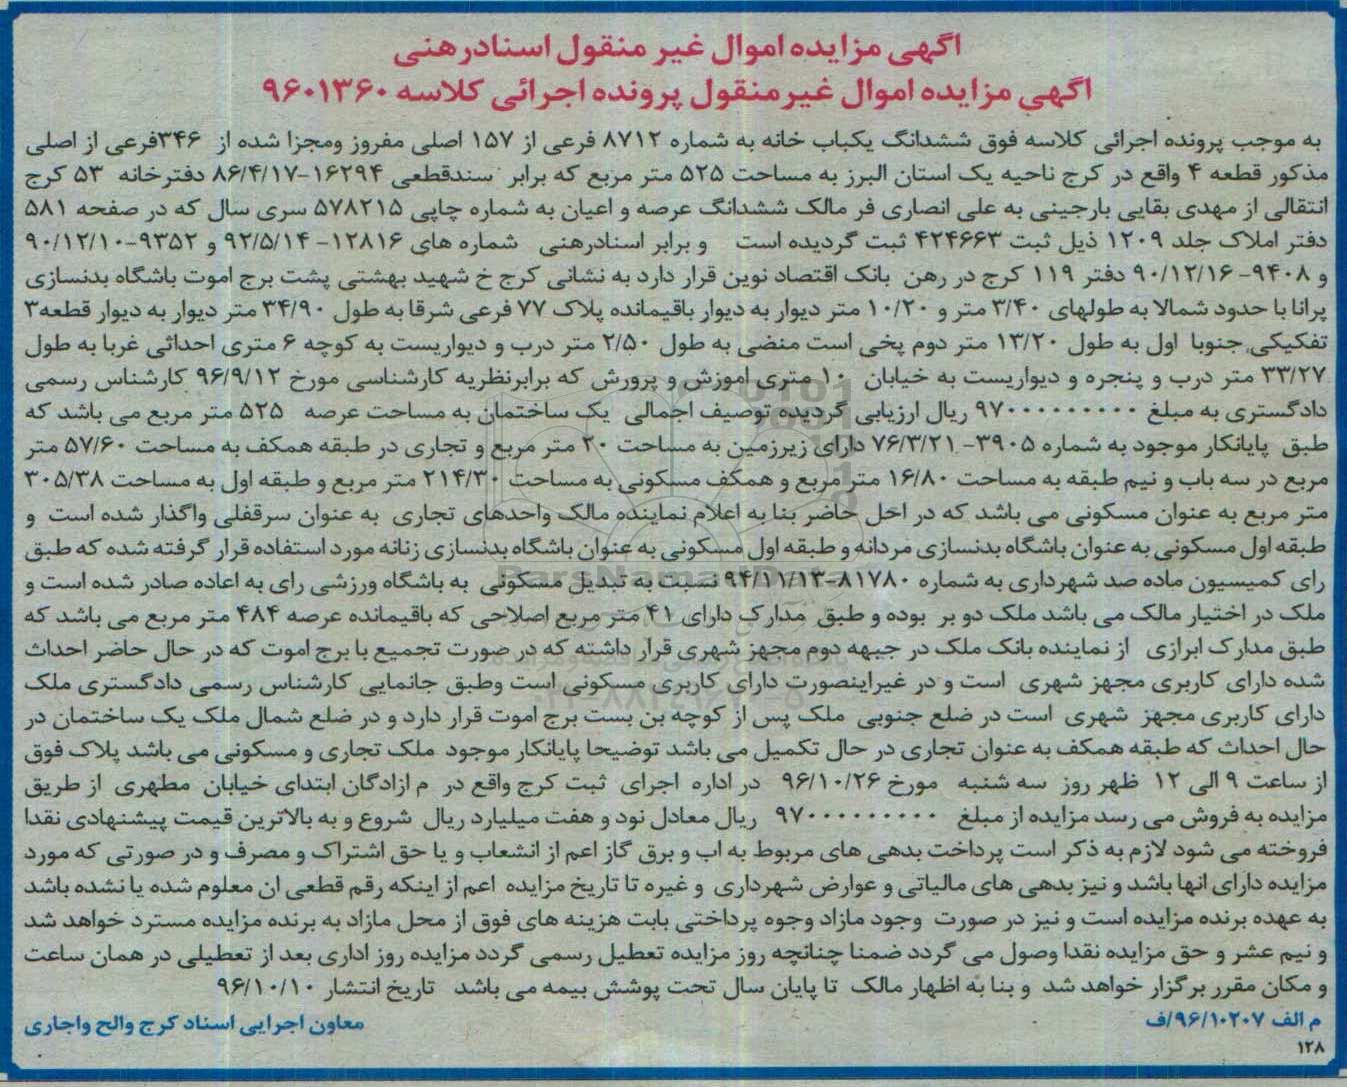 اگهی مزایده اموال غیر منقول اسنادرهنی
اگهی مزایده اموال غیرمنقول پرونده اجرائی کلاسه ۹۶۰۱۳۶۰
به موجب پرونده اجرائی کلاسه فوق ششدانگ یکباب خانه به شماره ۸۷۱۲ فرعی از ۱۵۷ اصلی مفروز ومجزا شده از ۳۴۶فرعی از اصلی
مذکور قطعه ۴ واقع در کرج ناحیه یک استان البرز به مساحت ۵۲۵ متر مربع که برابر سندقطعی ۱۶۲۹۴-۸۶/۴/۱۷ دفترخانه ۵۳ کرج
انتقالی از مهدی بقایی بارجینی به علی انصاری فر مالک ششدانگ عرصه و اعیان به شماره چاپی ۵۷۸۲۱۵ سری سال که در صفحه ۵۸۱
دفتر املاک جلد ۱۲۰۹ ذیل ثبت ۴۲۴۶۶۳ ثبت گردیده است و برابر اسنادرهنی شماره های ۱۲۸۱۶- ۹۲/۵/۱۴ و ۹۳۵۲-۹۰/۱۲/۱۰
و ۹۴۰۸- ۹۰/۱۲/۱۶ دفتر ۱۱۹ کرج در رهن بانک اقتصاد نوین قرار دارد به نشانی کرج خ شهید بهشتی پشت برج اموت باشگاه بدنسازی
پرانا با حدود شمالا به طولهای ۳/۴۰ متر و ۱۰/۲۰ متر دیوار به دیوار باقیمانده پلاک ۷۷ فرعی شرقا به طول ۳۴/۹۰ متر دیوار به دیوار قطعه۳
تفکیکی جنوبا اول به طول ۱۳/۲۰ متر دوم پخی است منضی به طول ۲/۵۰ متر درب و دیواریست به کوچه ۶ متری احداثی غربا به طول
۳۳/۲۷ متر درب و پنجره و دیواریست به خیابان ۱۰ متری اموزش و پرورش که برابرنظریه کارشناسی مورخ ۹۶/۹/۱۲ کارشناس رسمی
دادگستری به مبلغ ۹۷۰۰۰۰۰۰۰۰۰ ریال ارزیابی گردیده توصیف اجمالی یک ساختمان به مساحت عرصه ۵۲۵ متر مربع می باشد که
طبق پایانکار موجود به شماره ۳۹۰۵- ۷۶/۳/۲۱ دارای زیرزمین به مساحت ۲۰ متر مربع و تجاری در طبقه همکف به مساحت ۵۷/۶۰ متر
مربع در سه باب و نیم طبقه به مساحت ۱۶/۸۰ متر مربع و همکف مسکونی به مساحت ۲۱۴/۳۰ متر مربع و طبقه اول به مساحت ۳۰۵/۳۸
متر مربع به عنوان مسکونی می باشد که در اخل حاضر بنا به اعلام نماینده مالک واحدهای تجاری به عنوان سرقفلی واگذار شده است و
طبقه اول مسکونی به عنوان باشگاه بدنسازی مردانه و طبقه اول مسکونی به عنوان باشگاه بدنسازی زنانه مورد استفاده قرار گرفته شده که طبق
رای کمیسیون ماده صد شهرداری به شماره ۸۱۷۸۰-۹۴/۱۱/۱۳ نسبت به تبدیل مسکونی به باشگاه ورزشی رای به اعاده صادر شده است و
ملک در اختیار مالک می باشد ملک دو بر بوده و طبق مدارک دارای ۴۱ متر مربع اصلاحی که باقیمانده عرصه ۴۸۴ متر مربع می باشد که
طبق مدارک ابرازی از نماینده بانک ملک در جبهه دوم مجهز شهری قرار داشته که در صورت تجمیع با برج اموت که در حال حاضر احداث
شده دارای کاربری مجهز شهری است و در غیراینصورت دارای کاربری مسکونی است وطبق جانمایی کارشناس رسمی دادگستری ملک
دارای کاربری مجهز شهری است در ضلع جنوبی ملک پس از کوچه بن بست برج اموت قرار دارد و در ضلع شمال ملک یک ساختمان در
حال احداث که طبقه همکف به عنوان تجاری در حال تکمیل می باشد توضیحا پایانکار موجود ملک تجاری و مسکونی می باشد پلاک فوق
از ساعت ۹ الی ۱۲ ظهر روز سه شنبه مورخ ۹۶/۱۰/۲۶ در اداره اجرای ثبت کرج واقع در م ازادگان ابتدای خیابان مطهری از طریق
مزایده به فروش می رسد مزایده از مبلغ ۹۷۰۰۰۰۰۰۰۰۰ ریال معادل نود و هفت میلیارد ریال شروع و به بالاترین قیمت پیشنهادی نقدا
فروخته می شود لازم به ذکر است پرداخت بدهی های مربوط به اب و برق گاز اعم از انشعاب و یا حق اشتراک و مصرف و در صورتی که مورد
مزایده دارای انها باشد و نیز بدهی های مالیاتی و عوارض شهرداری و غیره تا تاریخ مزایده اعم از اینکه رقم قطعی ان معلوم شده یا نشده باشد
به عهده برنده مزایده است و نیز در صورت وجود مازاد وجوه پرداختی بابت هزینه های فوق از محل مازاد به برنده مزایده مسترد خواهد شد
و نیم عشر و حق مزایده نقدا وصول می گردد ضمنا چنانچه روز مزایده تعطیل رسمی گردد مزایده روز اداری بعد از تعطیلی در همان ساعت
و مکان مقرر برگزار خواهد شد و بنا به اظهار مالک تا پایان سال تحت پوشش بیمه می باشد تاریخ انتشار ۹۶/۱۰/۱۰
م الف ۹۶/۱۰۲۰۷/ف
معاون اجرایی اسناد کرج والح واجاری
۱۲۸
ParsNamadData